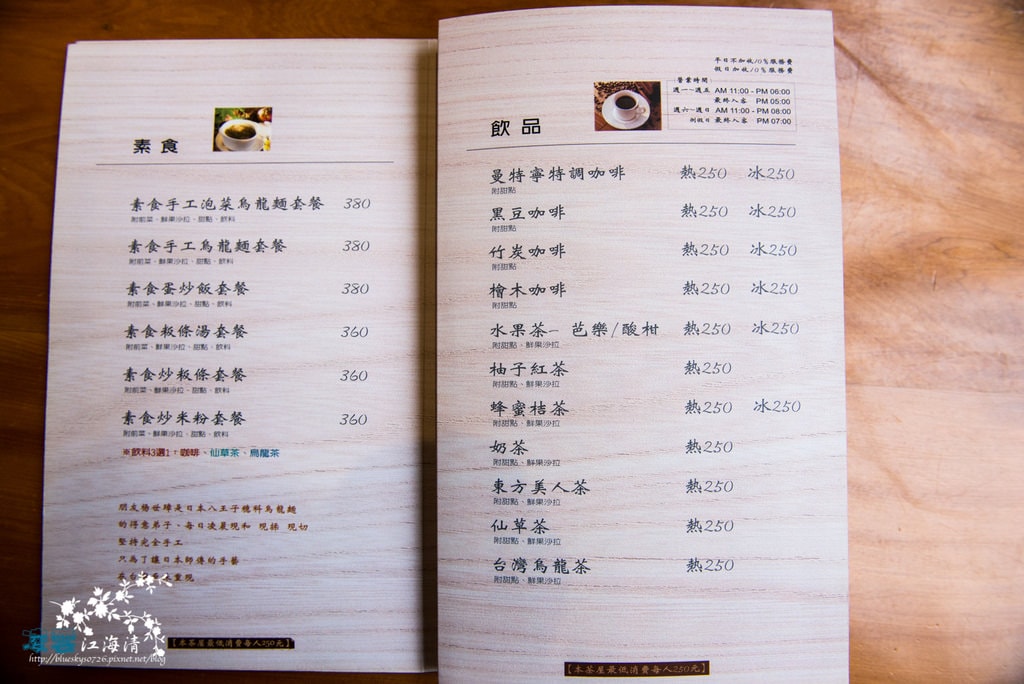 素食
素食手工泡菜烏龍麵套餐 380
附前菜、鮮果沙拉、甜點、飲料
素食手工烏龍麵套餐 380
附前菜、鮮果沙拉、甜點、飲料
素食蛋炒飯套餐 380
附前菜、鮮果沙拉、甜點、飲料
素食粄條湯套餐 360
附前菜、鮮果沙拉、甜點、飲料
素食炒粄條套餐 360
附前菜、鮮果沙拉、甜點、飲料
素食炒米粉套餐 360
附前菜、鮮果沙拉、甜點、飲料
※飲料3選1：咖啡、仙草茶、烏龍茶
朋友楊世璋是日本八王子穗科烏龍麵
的得意弟子、每日凌晨現和 現揉 現切
堅持完全手工
只為了讓日本師傅的手藝
重現
【本茶屋最低消費每人250元】
江海清
http://bluesky50726.pixnet.net/blog
平日不加收10%服務費
假日加收10%服務費
飲品
營業時間
週一~週五 AM 11:00 - PM 06:00
最終入客 PM 05:00
週六~週日 AM 11:00 - PM 08:00
例假日 最終入客 PM 07:00
曼特寧特調咖啡 熱250 冰250
附甜點
黑豆咖啡 熱250 冰250
附甜點
竹炭咖啡 熱250 冰250
附甜點
檜木咖啡 熱250 冰250
附甜點
水果茶- 芭樂/酸柑 熱250 冰250
附甜點、鮮果沙拉
柚子紅茶 熱250
附甜點、鮮果沙拉
蜂蜜桔茶 熱250 冰250
附甜點、鮮果沙拉
奶茶 熱250
附甜點、鮮果沙拉
東方美人茶 熱250
附甜點、鮮果沙拉
仙草茶 熱250
附甜點、鮮果沙拉
台灣烏龍茶 熱250
附甜點、鮮果沙拉
【本茶屋最低消費每人250元】